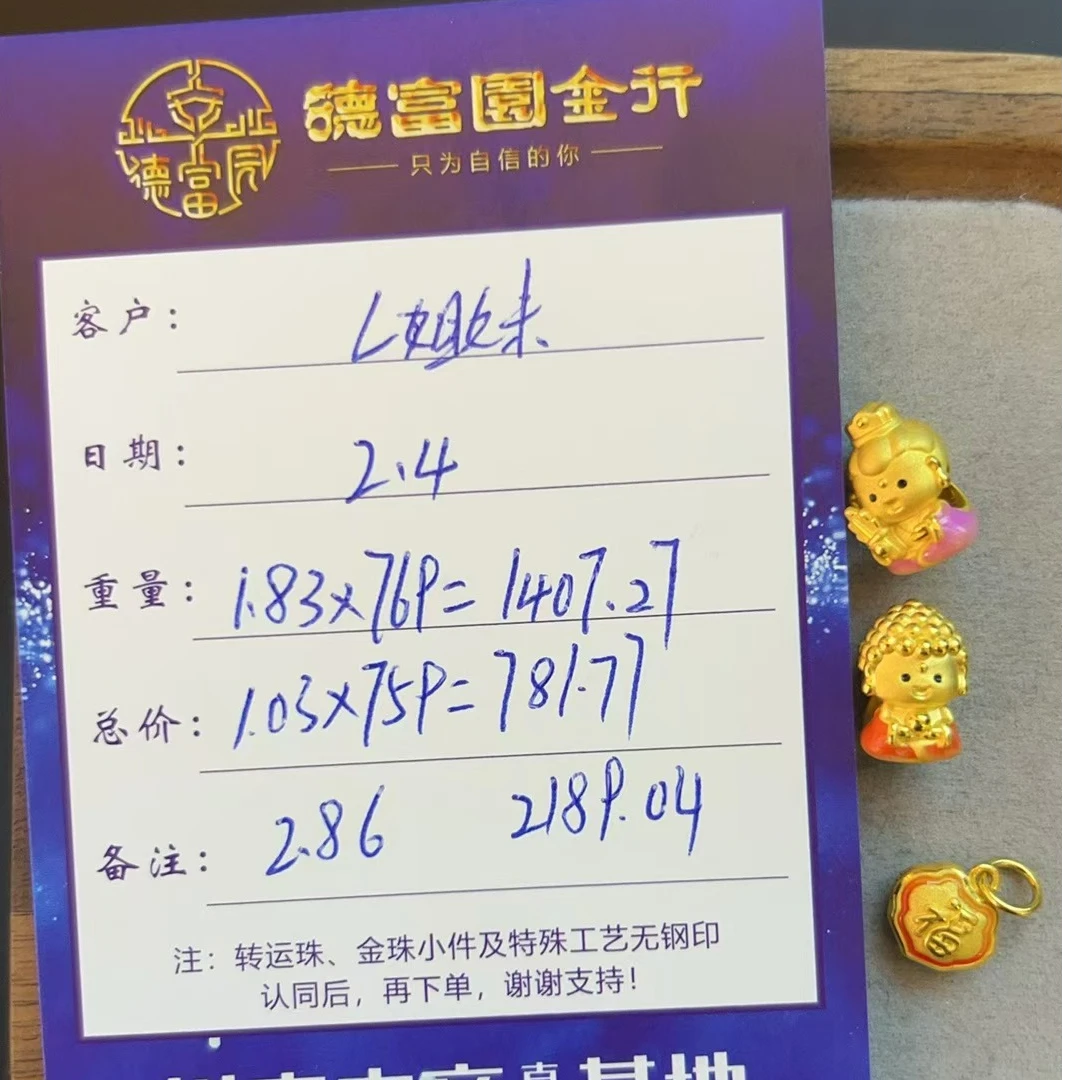 德富园
德富園金行
只为自信的你
客户： L姐妹
日期： 2.4
重量： 1.83×769= 1407.27
总价： 1.03×759= 781.77
备注： 2.86 2189.04
注：转运珠、金珠小件及特殊工艺无钢印
认同后，再下单，谢谢支持！
福